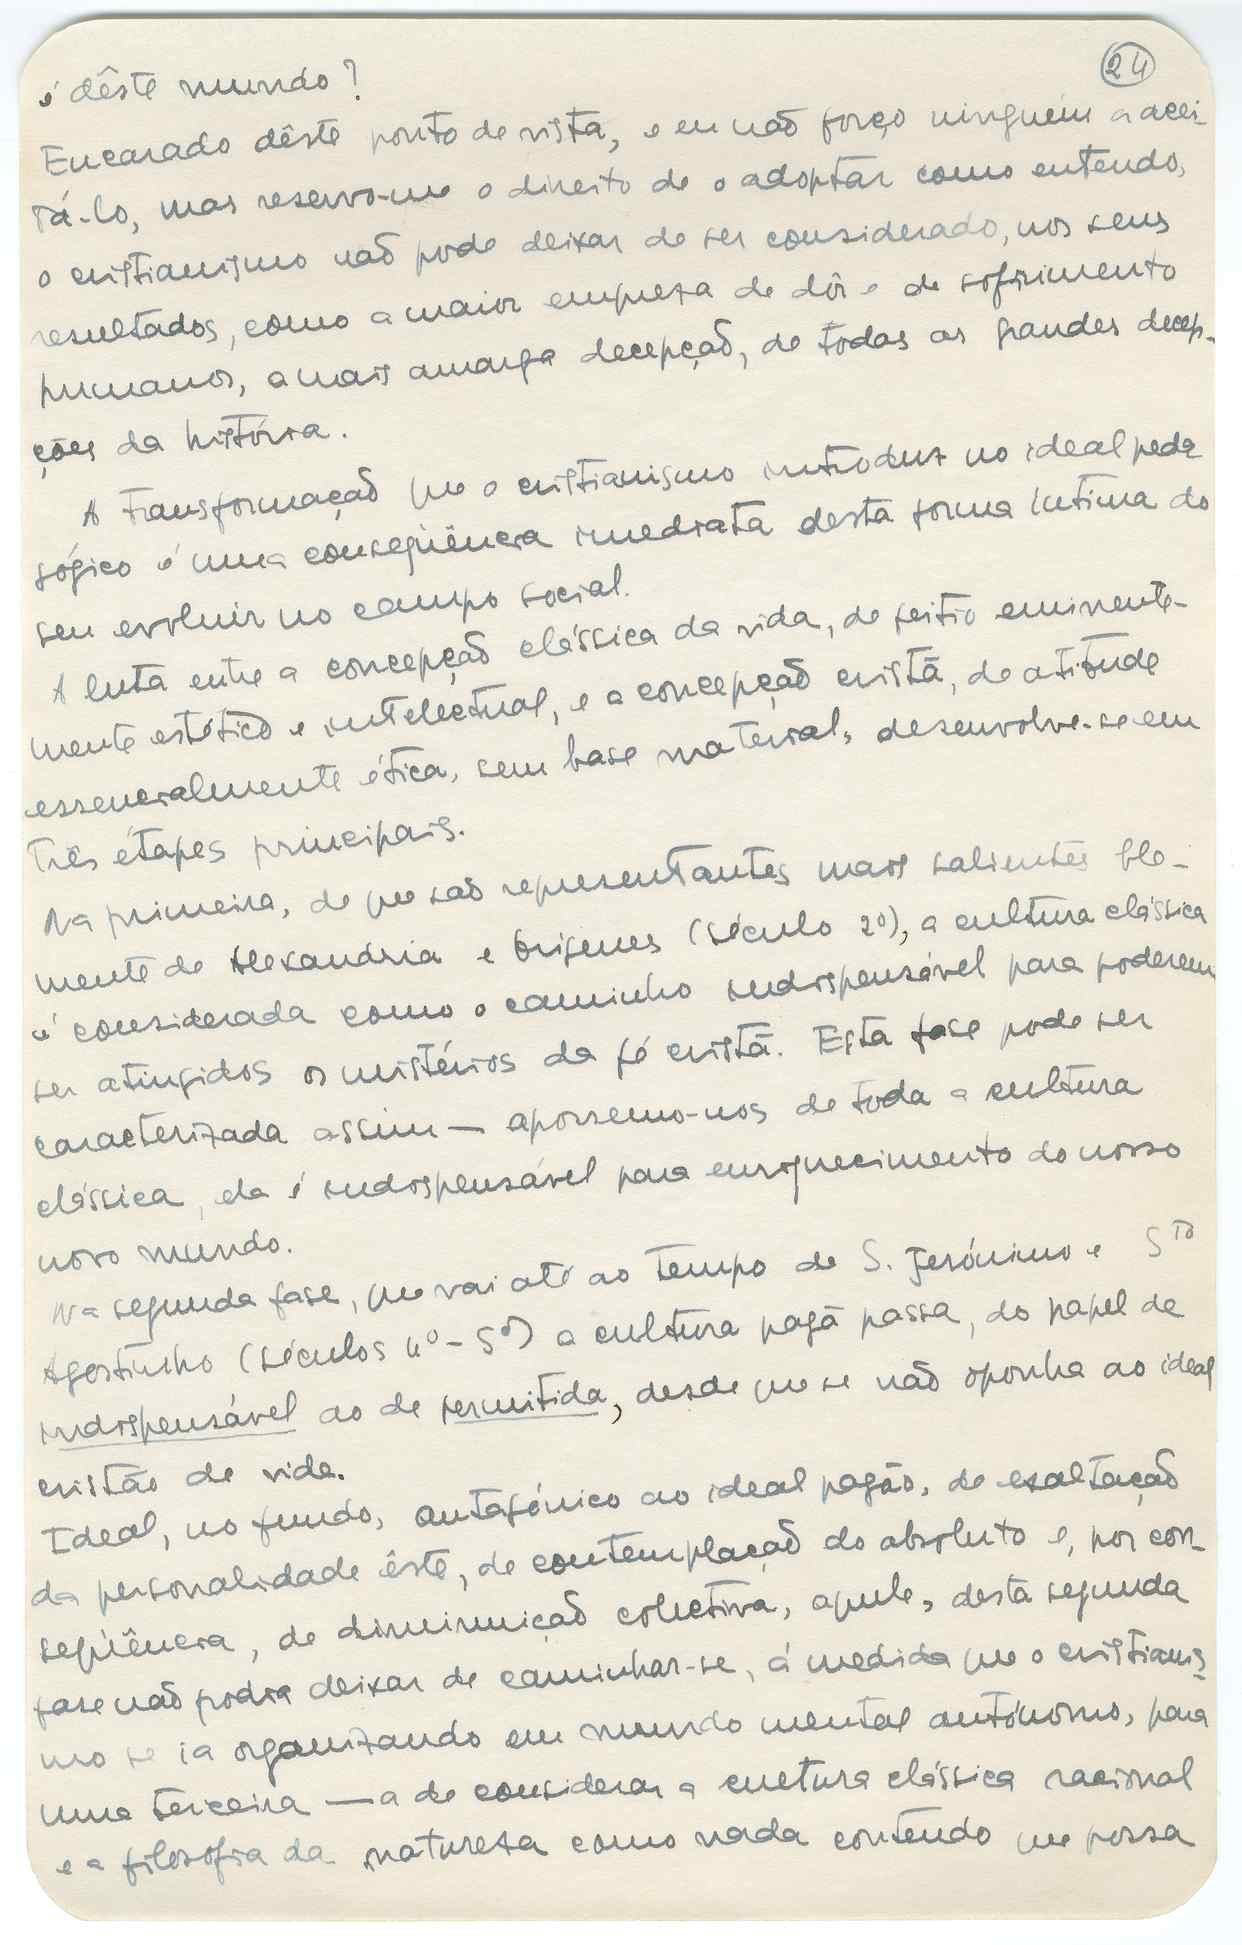 24
é dêste mundo?
Encarado dêste ponto de vista, e eu não forço ninguém a acei-
tá-lo, mas reservo-me o direito de o adoptar como entendo,
o cristianismo não pode deixar de ser considerado, nos seus
resultados, como a maior empresa de dôr e de sofrimento
humanos, a mais amarga decepção, de todas as grandes decep-
ções da história.
A transformação que o cristianismo introduz no ideal peda
gógico é uma conseqüência imediata desta forma íntima do
seu evoluir no campo social.
A luta entre a concepção clássica da vida, de feitio eminente-
mente estético e intelectual, e a concepção cristã, de atitude
essencialmente ética, sem base material, desenvolve-se em
três étapes principais.
Na primeira, de que são representantes mais salientes Cle-
mente de Alexandria e Orígenes (século 2º), a cultura clássica
é considerada como o caminho indispensável para poderem
ser atingidos os mistérios da fé cristã. Esta fase pode ser
caracterizada assim — apossemo-nos de toda a cultura
clássica, ela é indispensável para enriquecimento do nosso
novo mundo.
Na segunda fase, que vai até ao tempo de S. Jerónimo e Sto
Agostinho (séculos 4º - 5º) a cultura pagã passa, do papel de
indispensável ao de permitida, desde que se não oponha ao ideal
cristão de vida.
Ideal, no fundo, antagónico ao ideal pagão, de exaltação
da personalidade êste, de contemplação do absoluto e, por con-
seqüência, de diminuição colectiva, aquele, desta segunda
fase não podia deixar de caminhar-se, á medida que o cristianis-
mo se ia organizando em mundo mental autónomo, para
uma terceira — a de considerar a cultura clássica racional
e a filosofia da natureza como nada contendo que possa